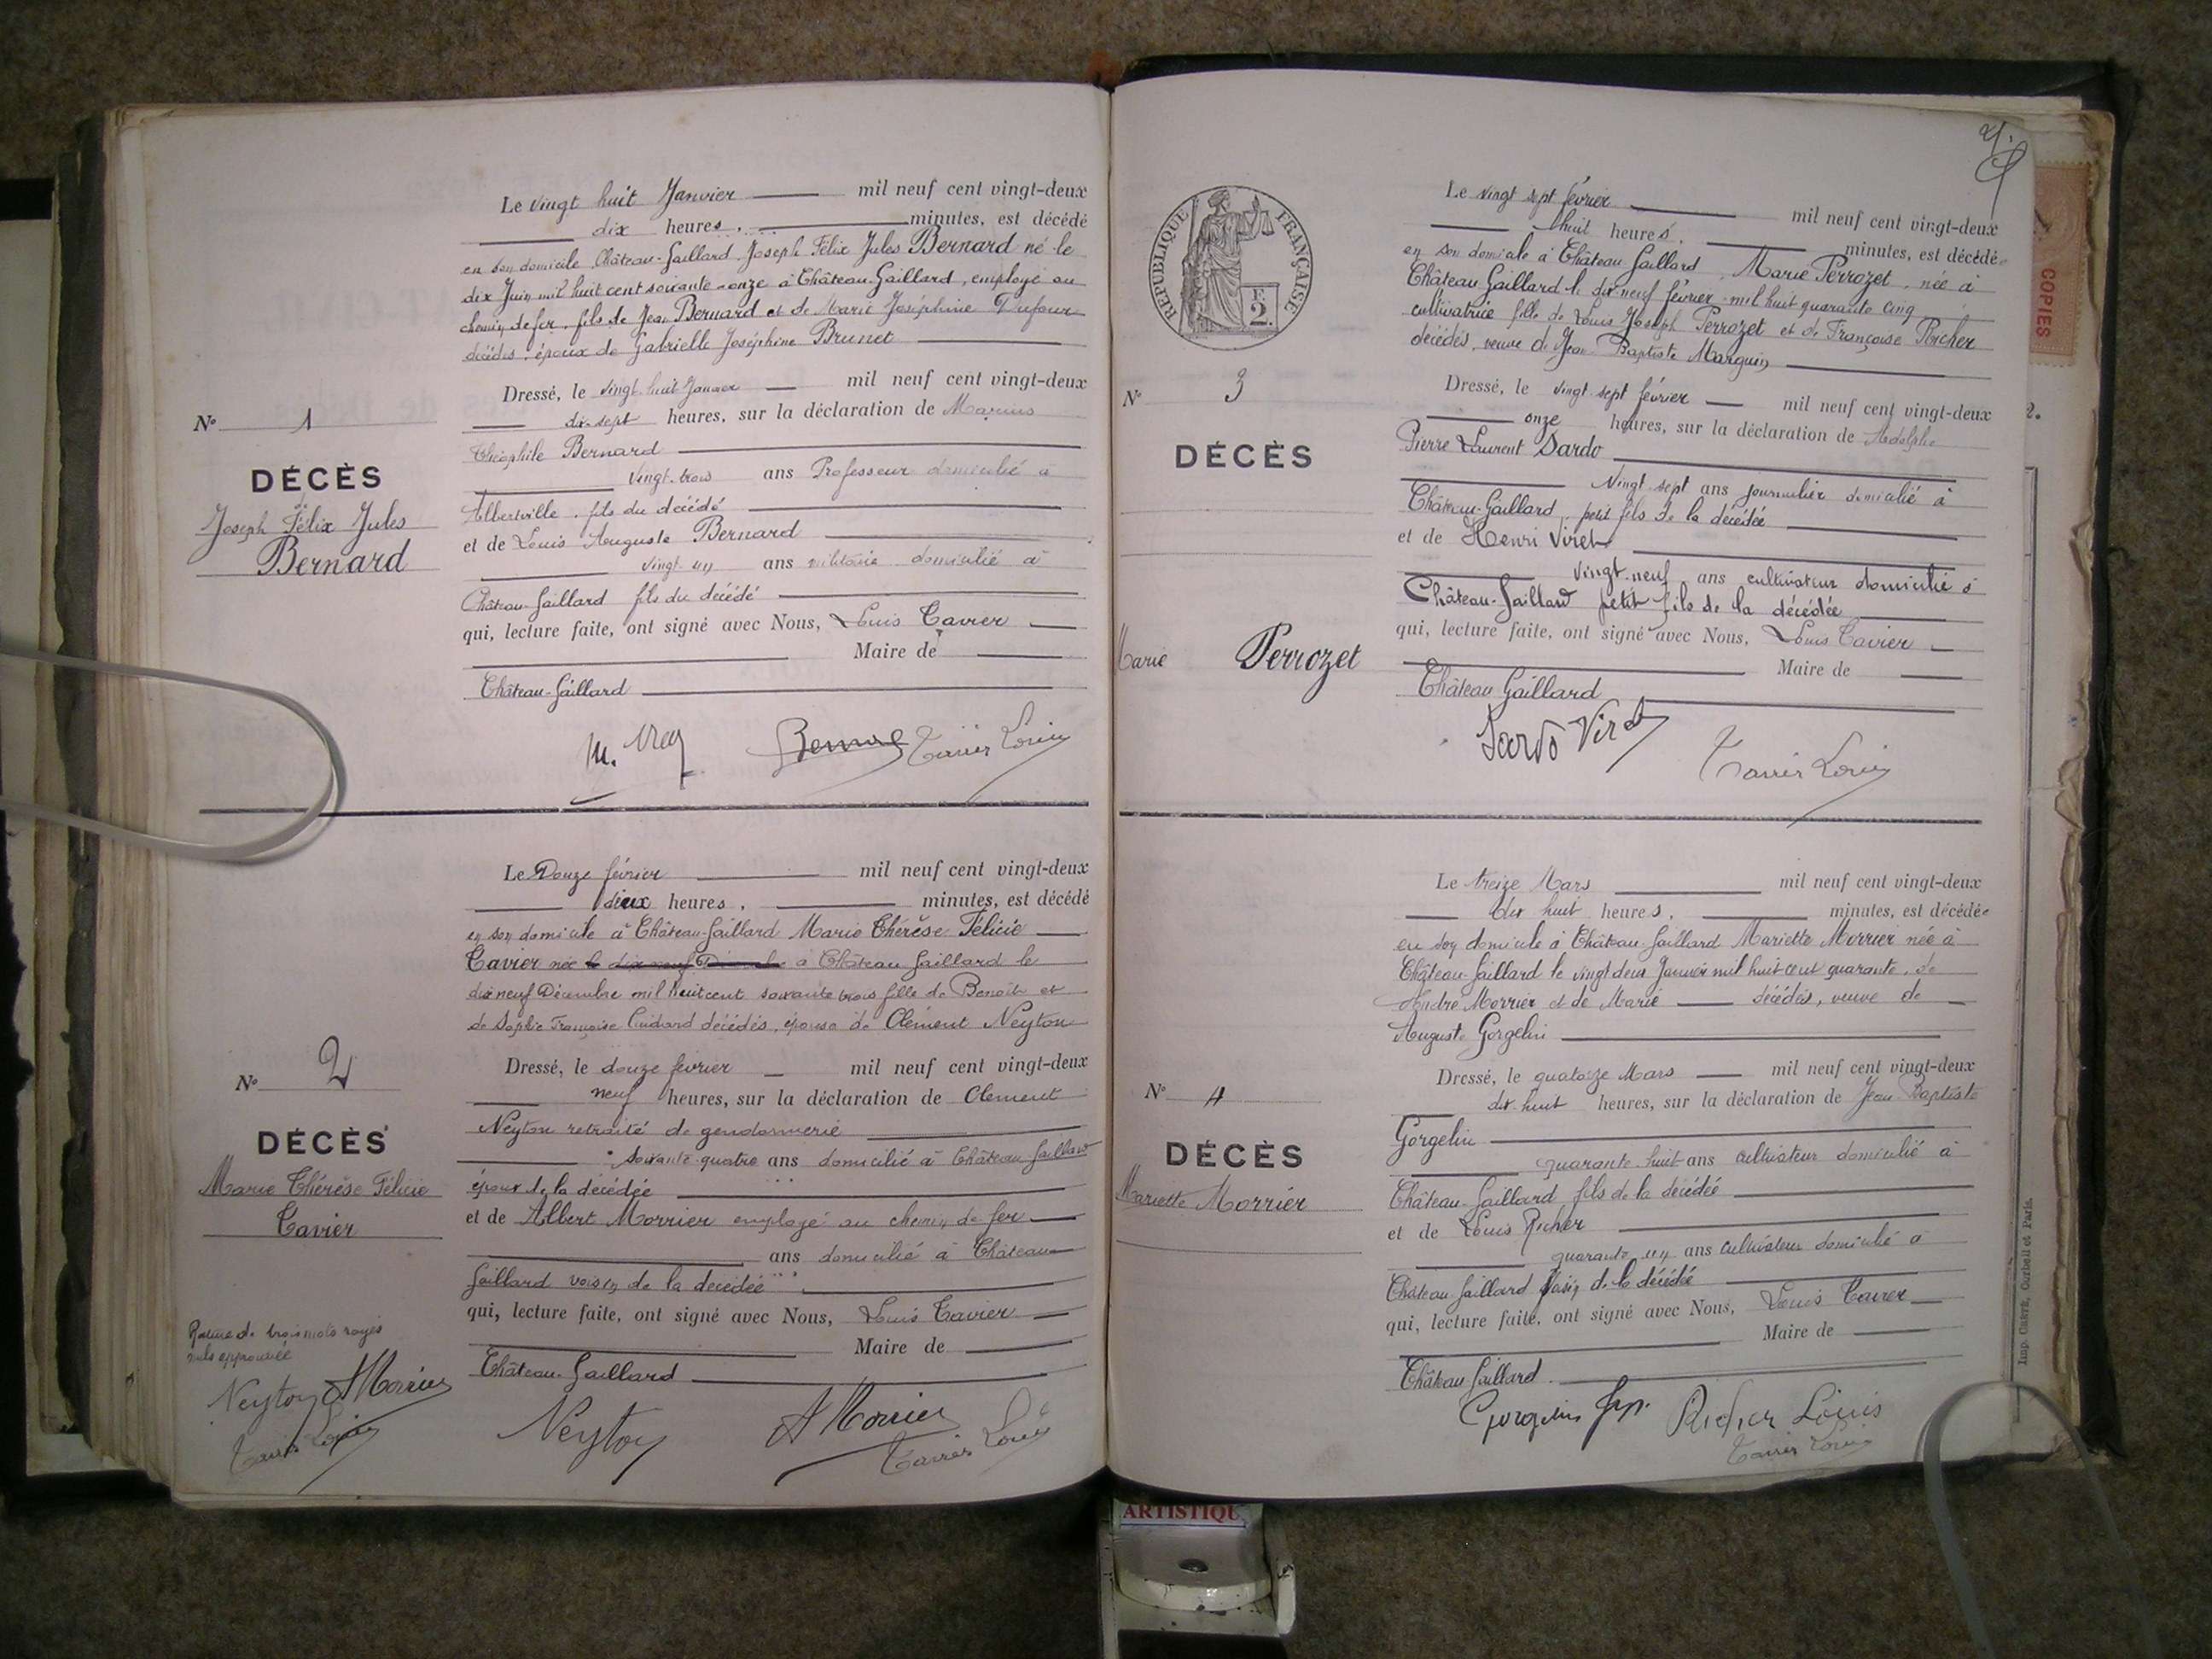 Le vingt huit Janvier mil neuf cent vingt-deux
dix heures, minutes, est décédé
en son domicile Château-Gaillard Joseph Félix Jules Bernard né le
dix Juin mil huit cent soixante-onze à Château-Gaillard, employé au
chemin de fer, fils de Jean Bernard et de Marie Joséphine Dufour
décédés, époux de Gabrielle Joséphine Brunet
Dressé, le vingt huit Janvier mil neuf cent vingt-deux
dix-sept heures, sur la déclaration de Marius
Théophile Bernard
vingt-trois ans Professeur domicilié à
Albertville, fils du décédé
et de Louis Auguste Bernard
vingt un ans militaire domicilié à
Château-Gaillard fils du décédé
qui, lecture faite, ont signé avec Nous, Louis Tavier
Maire de
Château-Gaillard
No 1
DÉCÈS
Joseph Félix Jules
Bernard
Tavier Louis
Le Douze février mil neuf cent vingt-deux
deux heures, minutes, est décédé
en son domicile à Château-Gaillard Marie Thérèse Félicie
Tavier née le dix neuf Décembre à Château Gaillard le
dix neuf Décembre mil huit cent soixante trois fille de Benoît et
de Sophie Françoise décédés, épouse de Clément Neyton
Dressé, le douze février mil neuf cent vingt-deux
neuf heures, sur la déclaration de Clément
Neyton retraité de gendarmerie
soixante-quatre ans domicilié à Château Gaillard
époux de la décédée
et de Albert Morrier employé au chemin de fer
ans domicilié à Château
Gaillard voisin de la décédée
qui, lecture faite, ont signé avec Nous, Louis Tavier
Maire de
Château-Gaillard
No 2
DÉCÈS
Marie Thérèse Félicie
Tavier
de trois mots rayés
nuls approuvée
Neyton A Morrier
Tavier Louis
Neyton A Morrier
Tavier Louis
RÉPUBLIQUE FRANÇAISE
F.
2.
Le vingt sept février mil neuf cent vingt-deux
huit heures, minutes, est décédée
en son domicile à Château Gaillard, Marie Perrozet, née à
Château Gaillard le dix neuf février mil huit quarante cinq
cultivatrice fille de Louis Joseph Perrozet et de Françoise Richer
décédés, veuve de Jean Baptiste Marguin
Dressé, le vingt sept février mil neuf cent vingt-deux
onze heures, sur la déclaration de Adolphe
Pierre Laurent Sardo
Vingt-sept ans journalier domicilié à
Château-Gaillard, petit fils de la décédée
et de Henri Viret
vingt-neuf ans cultivateur domicilié à
Château-Gaillard petit fils de la décédée
qui, lecture faite, ont signé avec Nous, Louis Tavier
Maire de
Château Gaillard
No 3
DÉCÈS
Marie Perrozet
Sardo Viret
Tavier Louis
Le treize Mars mil neuf cent vingt-deux
dix huit heures, minutes, est décédée
en son domicile à Château-Gaillard Mariette Morrier née à
Château-Gaillard le vingt deux Janvier mil huit cent quarante, de
André Morrier et de Marie décédés, veuve de
Auguste Gorgelin
Dressé, le quatorze Mars mil neuf cent vingt-deux
dix-huit heures, sur la déclaration de Jean-Baptiste
Gorgelin
quarante-huit ans cultivateur domicilié à
Château-Gaillard fils de la décédée
et de Louis Richer
quarante un ans cultivateur domicilié à
Château Gaillard de la décédée
qui, lecture faite, ont signé avec Nous, Louis Tavier
Maire de
Château Gaillard
No 4
DÉCÈS
Mariette Morrier
Gorgelin Richer Louis
Tavier Louis
COPIES
2.
Corbeil et Paris.
ARTISTIQU